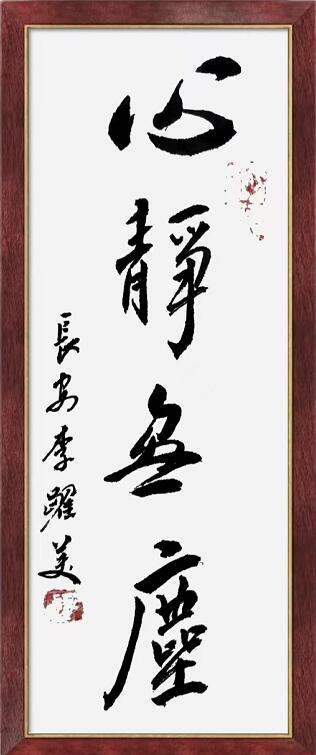 心靜無塵
長安李躍美